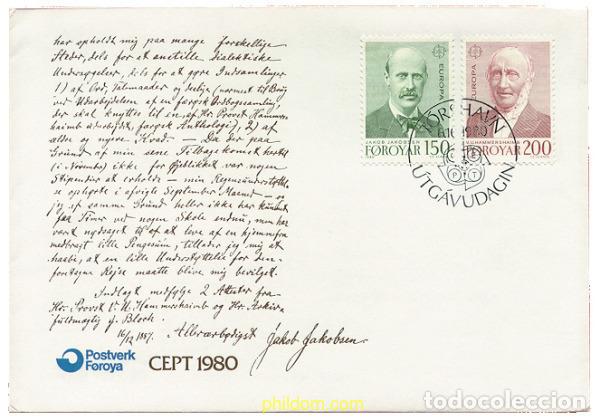 har opholdt mig paa mange forskellige
Steder, dels for at anstille dialektiske
Undersøgelser, dels for at gøre Indsamlinger
1) af Ord, Talemaader og deslige (nærmest til Brug
ved Udarbejdelsen af en færøsk Ordbogssamling,
der skal knyttes til en af Hr. Provst Hammers-
haimb udarbejdet, færøsk Anthologi), 2) af
ældre og nyere Kvad. — Da der paa
Grund af min sene Tilbagekomst hertil
(i November) ikke for Øjeblikket var nogen
Stipendier at erholde — min Regensunderstøttelse
ophørte i afvigte September Maaned — og
jeg af samme Grund heller ikke har kunnet
faa Timer ved nogen Skole endnu, men har
været nødsaget til at lave af en hjemmefra
medbragt lille Pengesum, tillader jeg mig at
haabe, at en lille Understøttelse for den
foretagne Rejse maatte blive mig bevilget.
Indlagt medfølge 2 Attester fra
Hr. Provst V. U. Hammershaimb og Hr.
fuldmægtig J. Bloch.
16/12 1887. Allerærbødigst Jakob Jakobsen
Postverk
Føroya
CEPT 1980
EUROPA
JAKOB JAKOBSEN
FØROYAR 150
EUROPA
V.U. HAMMERSHAIMB
FØROYAR 200
TÓRSHAVN
6.10.1980
C E P T
ÚTGÁVUDAGIN
phildom.com
todocoleccion.net